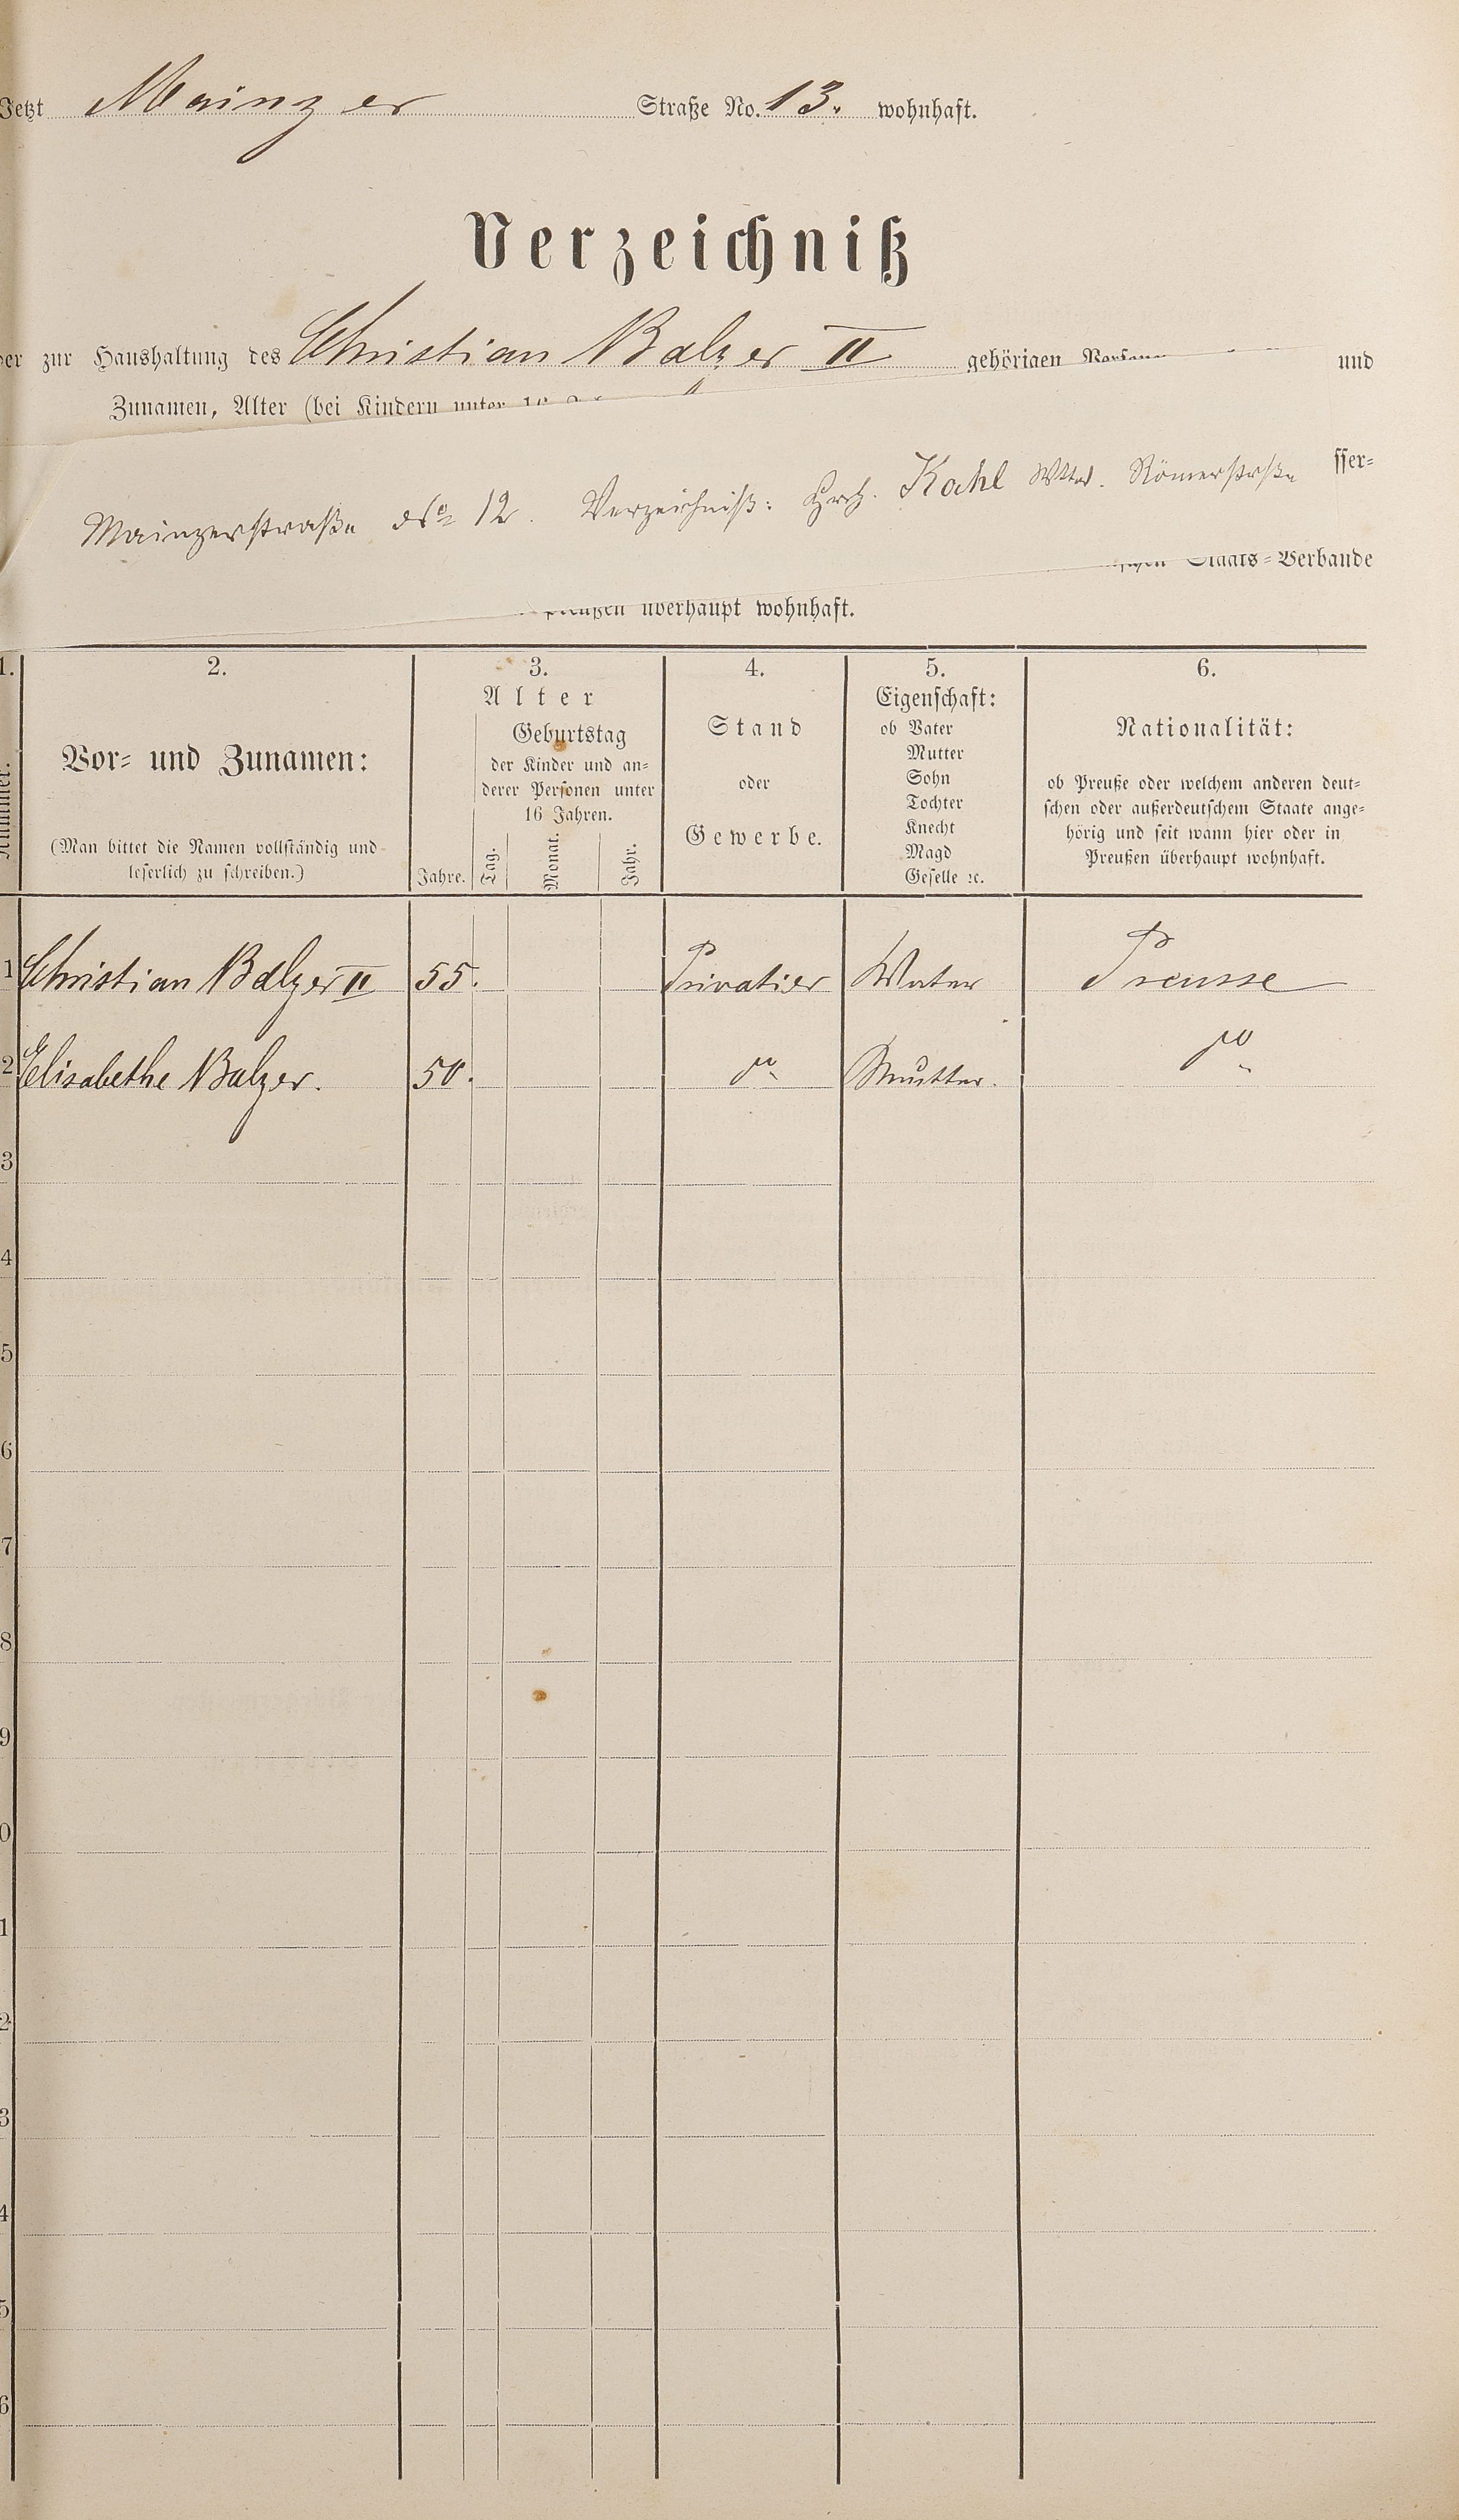 Jetzt Mainzer Straße No. 13. wohnhaft.
Verzeichniß
der zur Haushaltung des Christian Balzer II gehörigen und
Zunamen, Alter (bei Kindern unter
Mainzerstraße No 12. Verzeichniß: Kahl Wtw. Römerstraße
sser=
Staats=Verbande
Preußen überhaupt wohnhaft.
1. 2. 3. 4. 5. 6.
Nummer.
Vor= und Zunamen:
(Man bittet die Namen vollständig und
leserlich zu schreiben.)
Alter
Jahre.
Geburtstag
der Kinder und an=
derer Personen unter
16 Jahren.
Tag. Monat. Jahr.
Stand
oder
Gewerbe.
Eigenschaft:
ob Vater
Mutter
Sohn
Tochter
Knecht
Magd
Geselle ꝛc.
Nationalität:
ob Preuße oder welchem anderen deut=
schen oder außerdeutschem Staate ange=
hörig und seit wann hier oder in
Preußen überhaupt wohnhaft.
1 Christian Balzer II 55. Privatier Vater Preusse
2 Elisabethe Balzer. 50. do Mutter. do
3
4
5
6
7
8
9
0
1
2
3
4
5
6